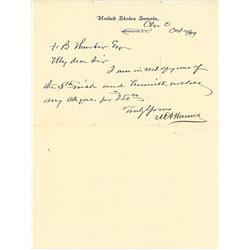 United States Senate,
WASHINGTON, D.C.
Clev O
Oct
F. B. Thurber Esq
My dear Sir
I am in receipt of yours of
the 5th inst and herewith enclose
my cheque for 250 00
Truly Yours
M A Hanna